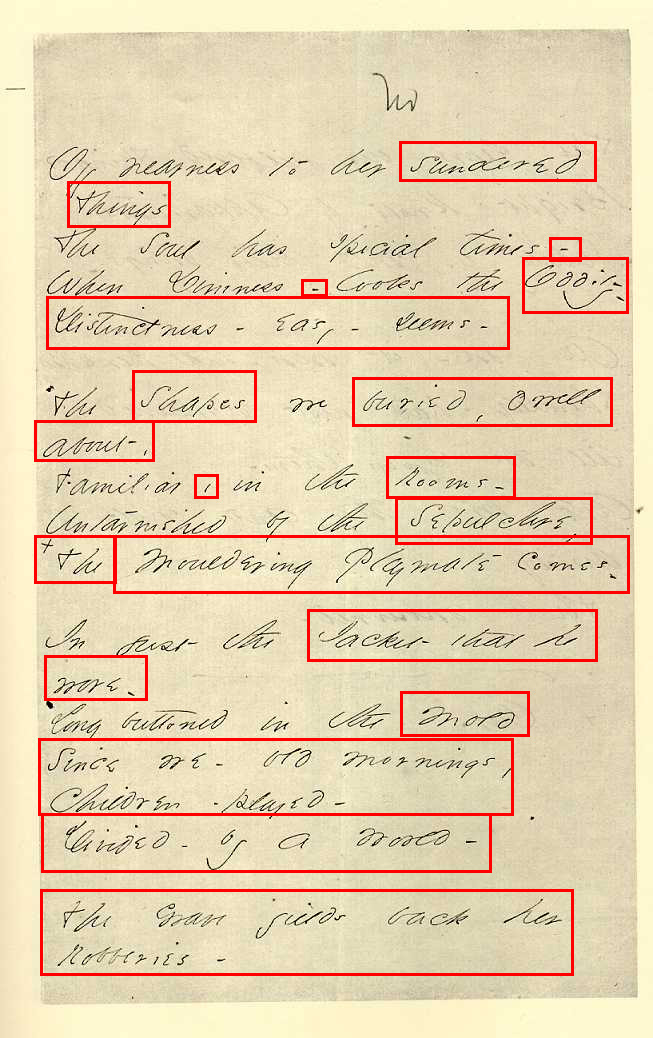 No
Of nearness to her sundered
things
The Soul has special times -
When Dimness - looks the Oddity -
Distinctness - easy, - seems -
The Shapes we buried, dwell
about,
Familiar, in the Rooms -
Untarnished by the Sepulchre,
+ The Mouldering Playmate Comes -
In just the Jacket that he
wore -
Long buttoned in the Mold
Since we - old mornings,
Children - played -
Divided - by a world -
The Grave yields back her
Robberies -